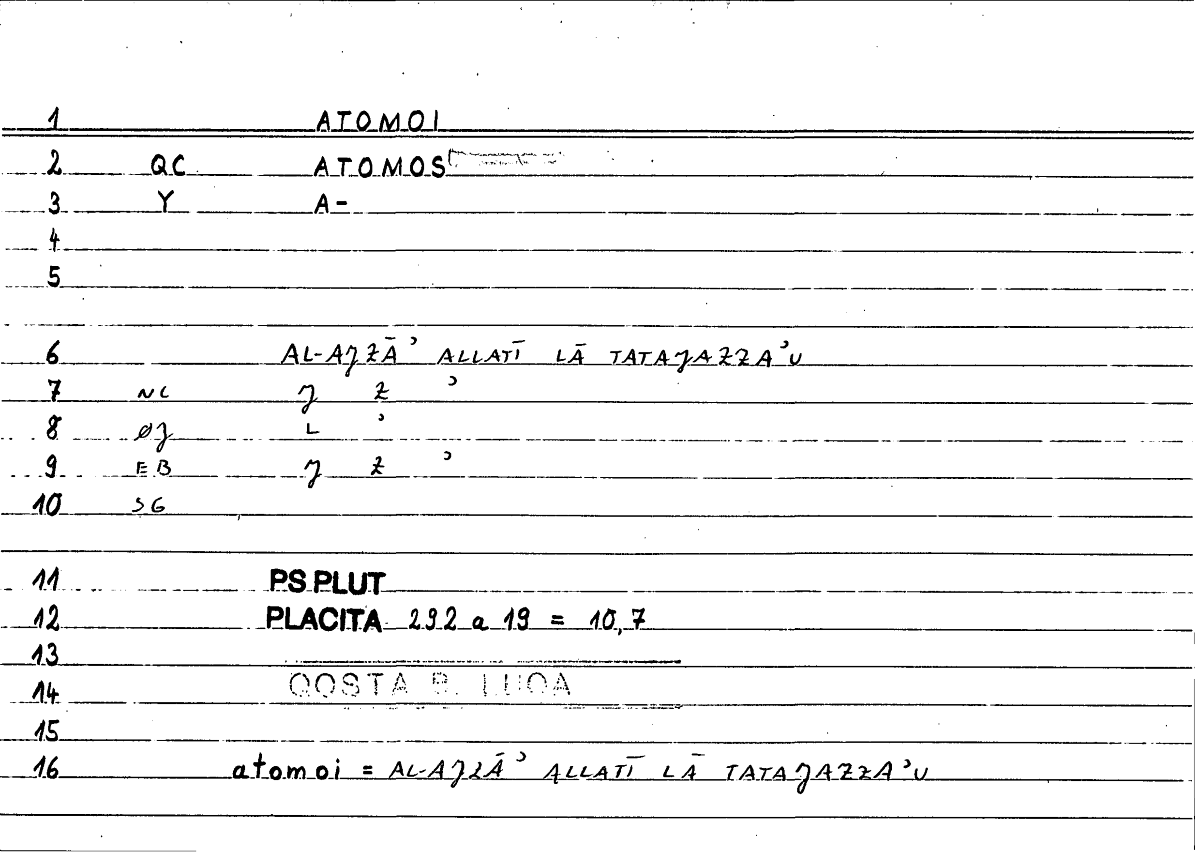 1 ATOMOI
2 QC ATOMOS
3 Y A-
4
5
6 AL-AJZĀʾ ALLATĪ LĀ TATAJAZZAʾU
7 NC J Z ʾ
8 ØJ L ʾ
9 EB J Z ʾ
10 SG
11 PS.PLUT
12 PLACITA 292 a 19 = 10,7
13
14 QOSTA B. LUQA
15
16 atomoi = AL-AJZĀʾ ALLATĪ LĀ TATAJAZZAʾU